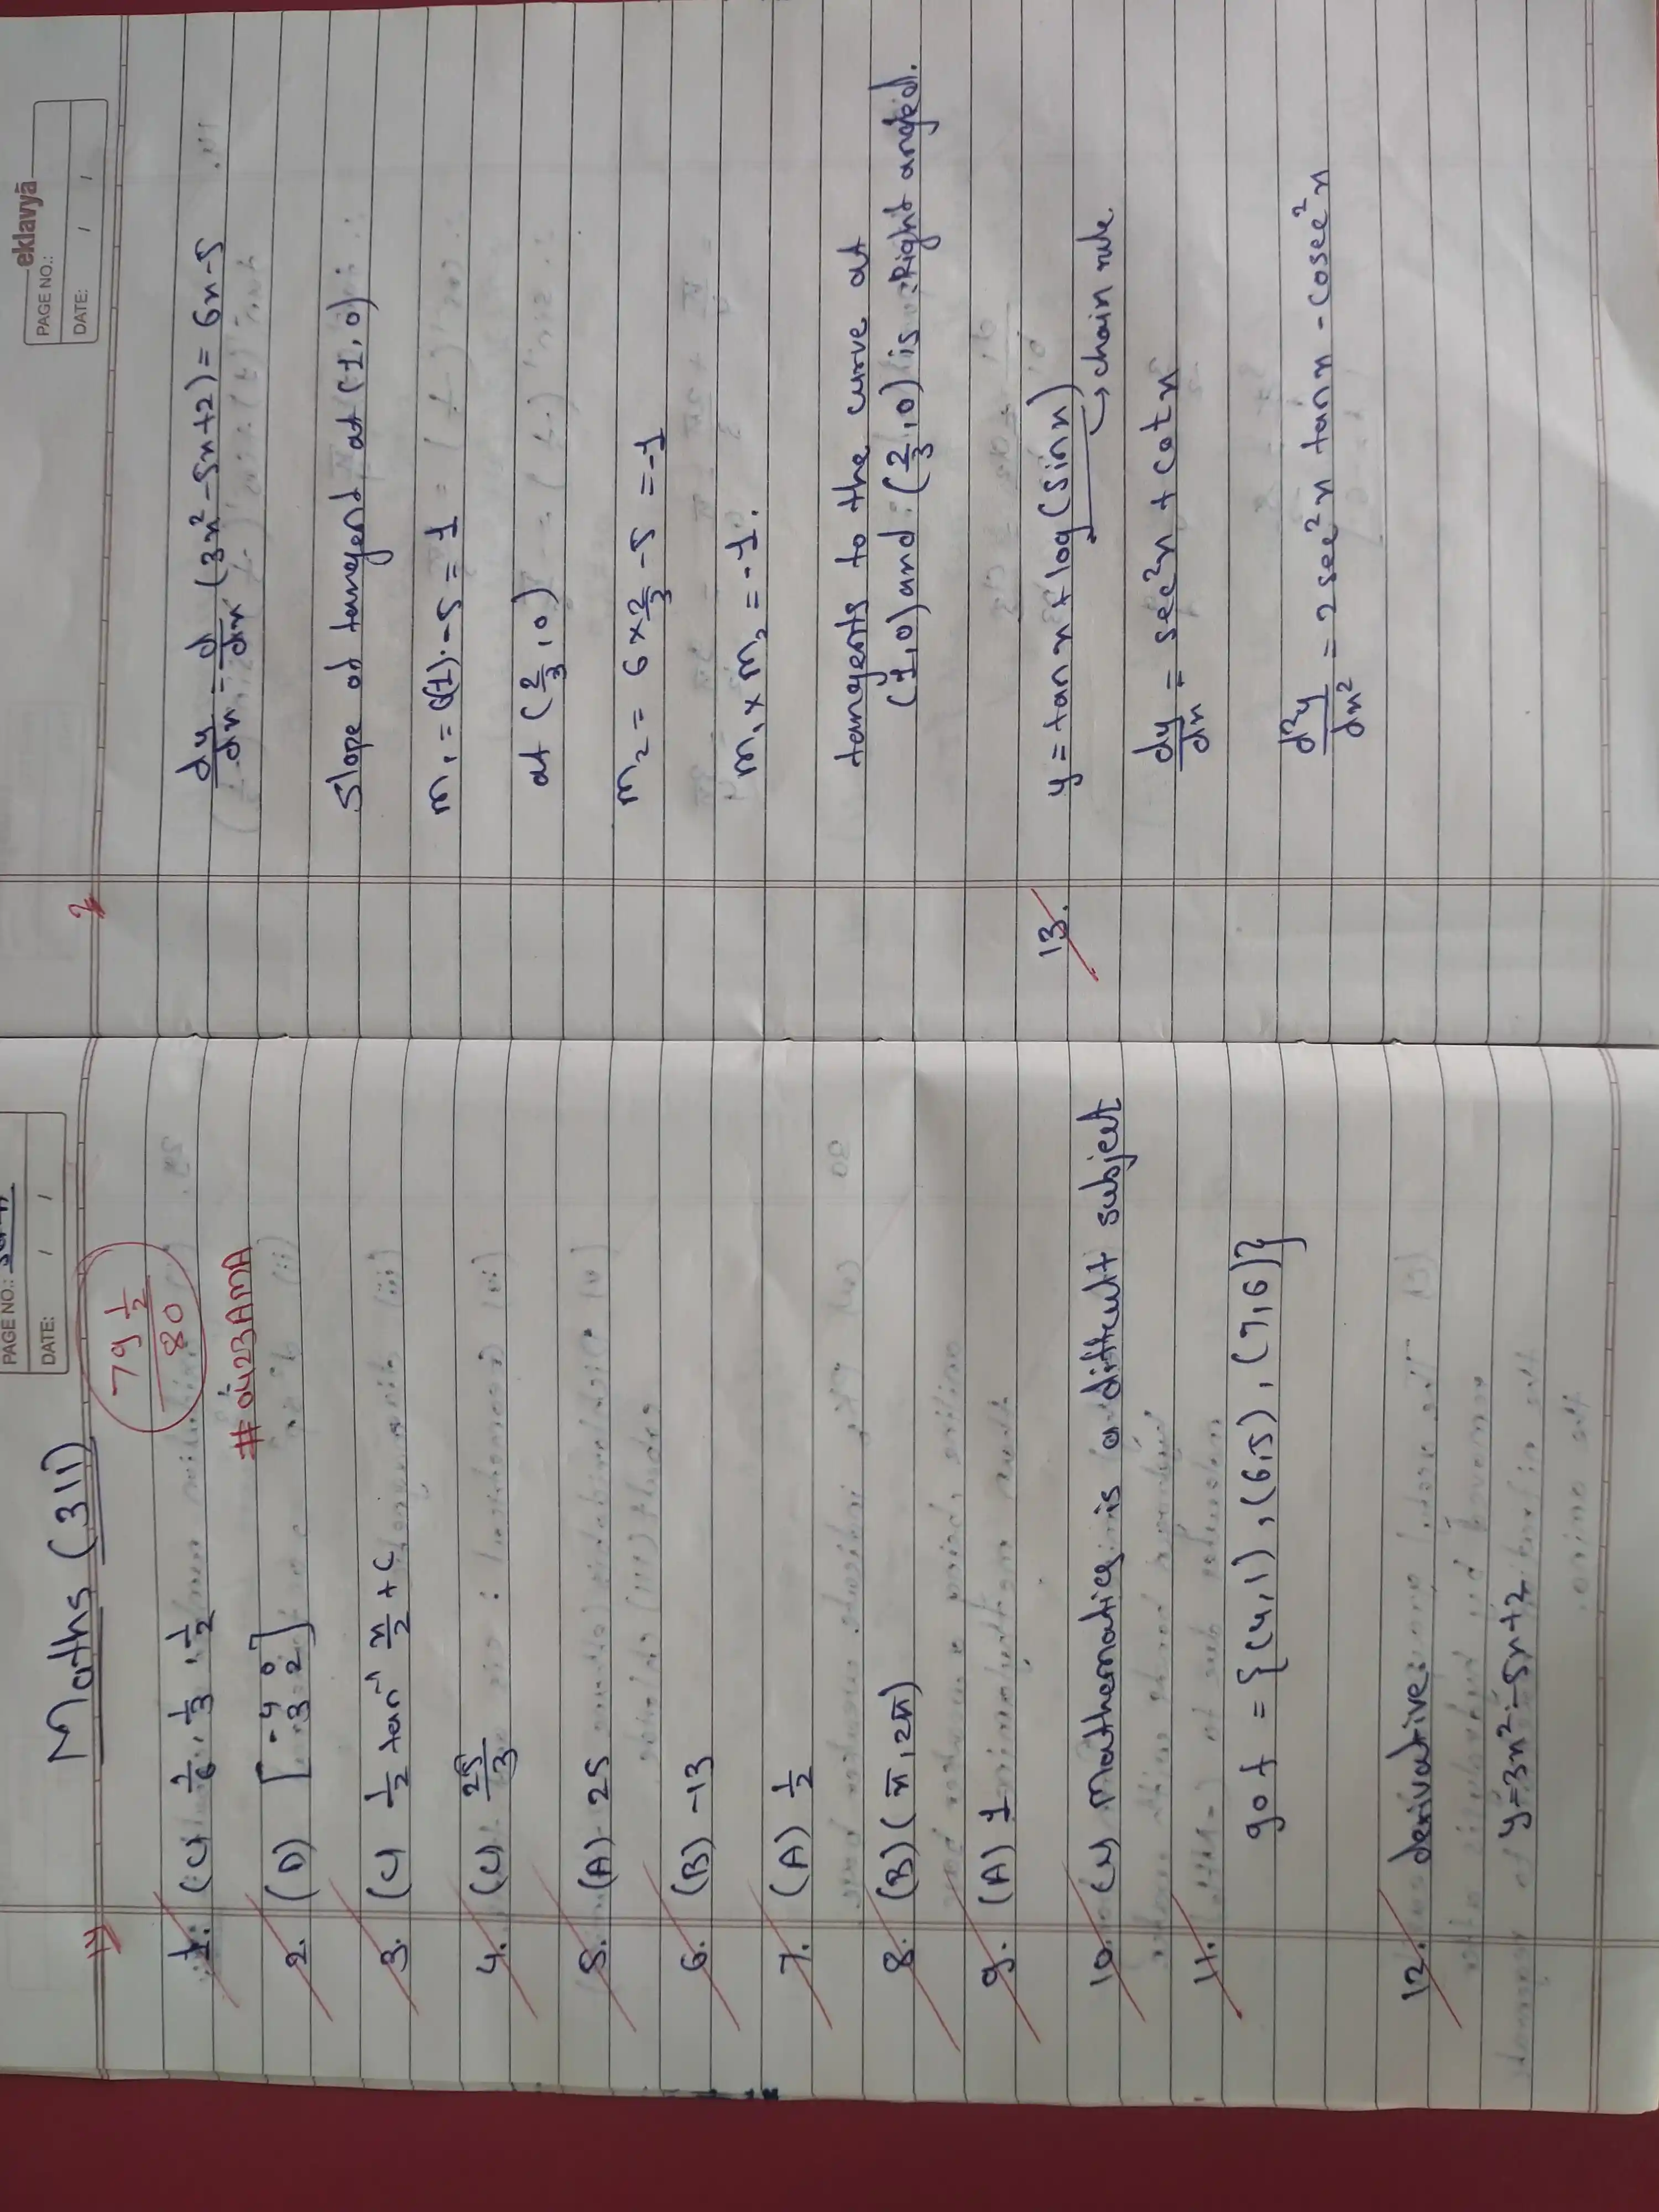 PAGE NO.:
DATE: / /
Maths (311)
79 1/2 / 80
#0423AMA
1)
1. (C) 1/6, 1/3, 1/2
2. (D) [-4 0
3 2]
3. (C) 1/2 tan⁻¹ x/2 + C
4. (C) 25/3
5. (A) 25
6. (B) -13
7. (A) 1/2
8. (B) (π, 2π)
9. (A) 1
10. (C) Mathematics is a difficult subject
11.
gof = {(4,1), (6,5), (7,6)}
12. derivative
y=3x²-5x+2
eklavyā
PAGE NO.:
DATE: / /
2
dy/dx = d/dx (3x²-5x+2) = 6x-5
Slope of tangent at (1,0)
m₁ = 6(1)-5 = 1
at (2/3, 0)
m₂ = 6 x 2/3 - 5 = -1
m₁ x m₂ = -1.
tangents to the curve at
(1,0) and (2/3, 0) is Right angled.
13. y = tan x + log(sin x)
→ chain rule.
dy/dx = sec²x + cot x
d²y/dx² = 2 sec²x tan x - cosec²x